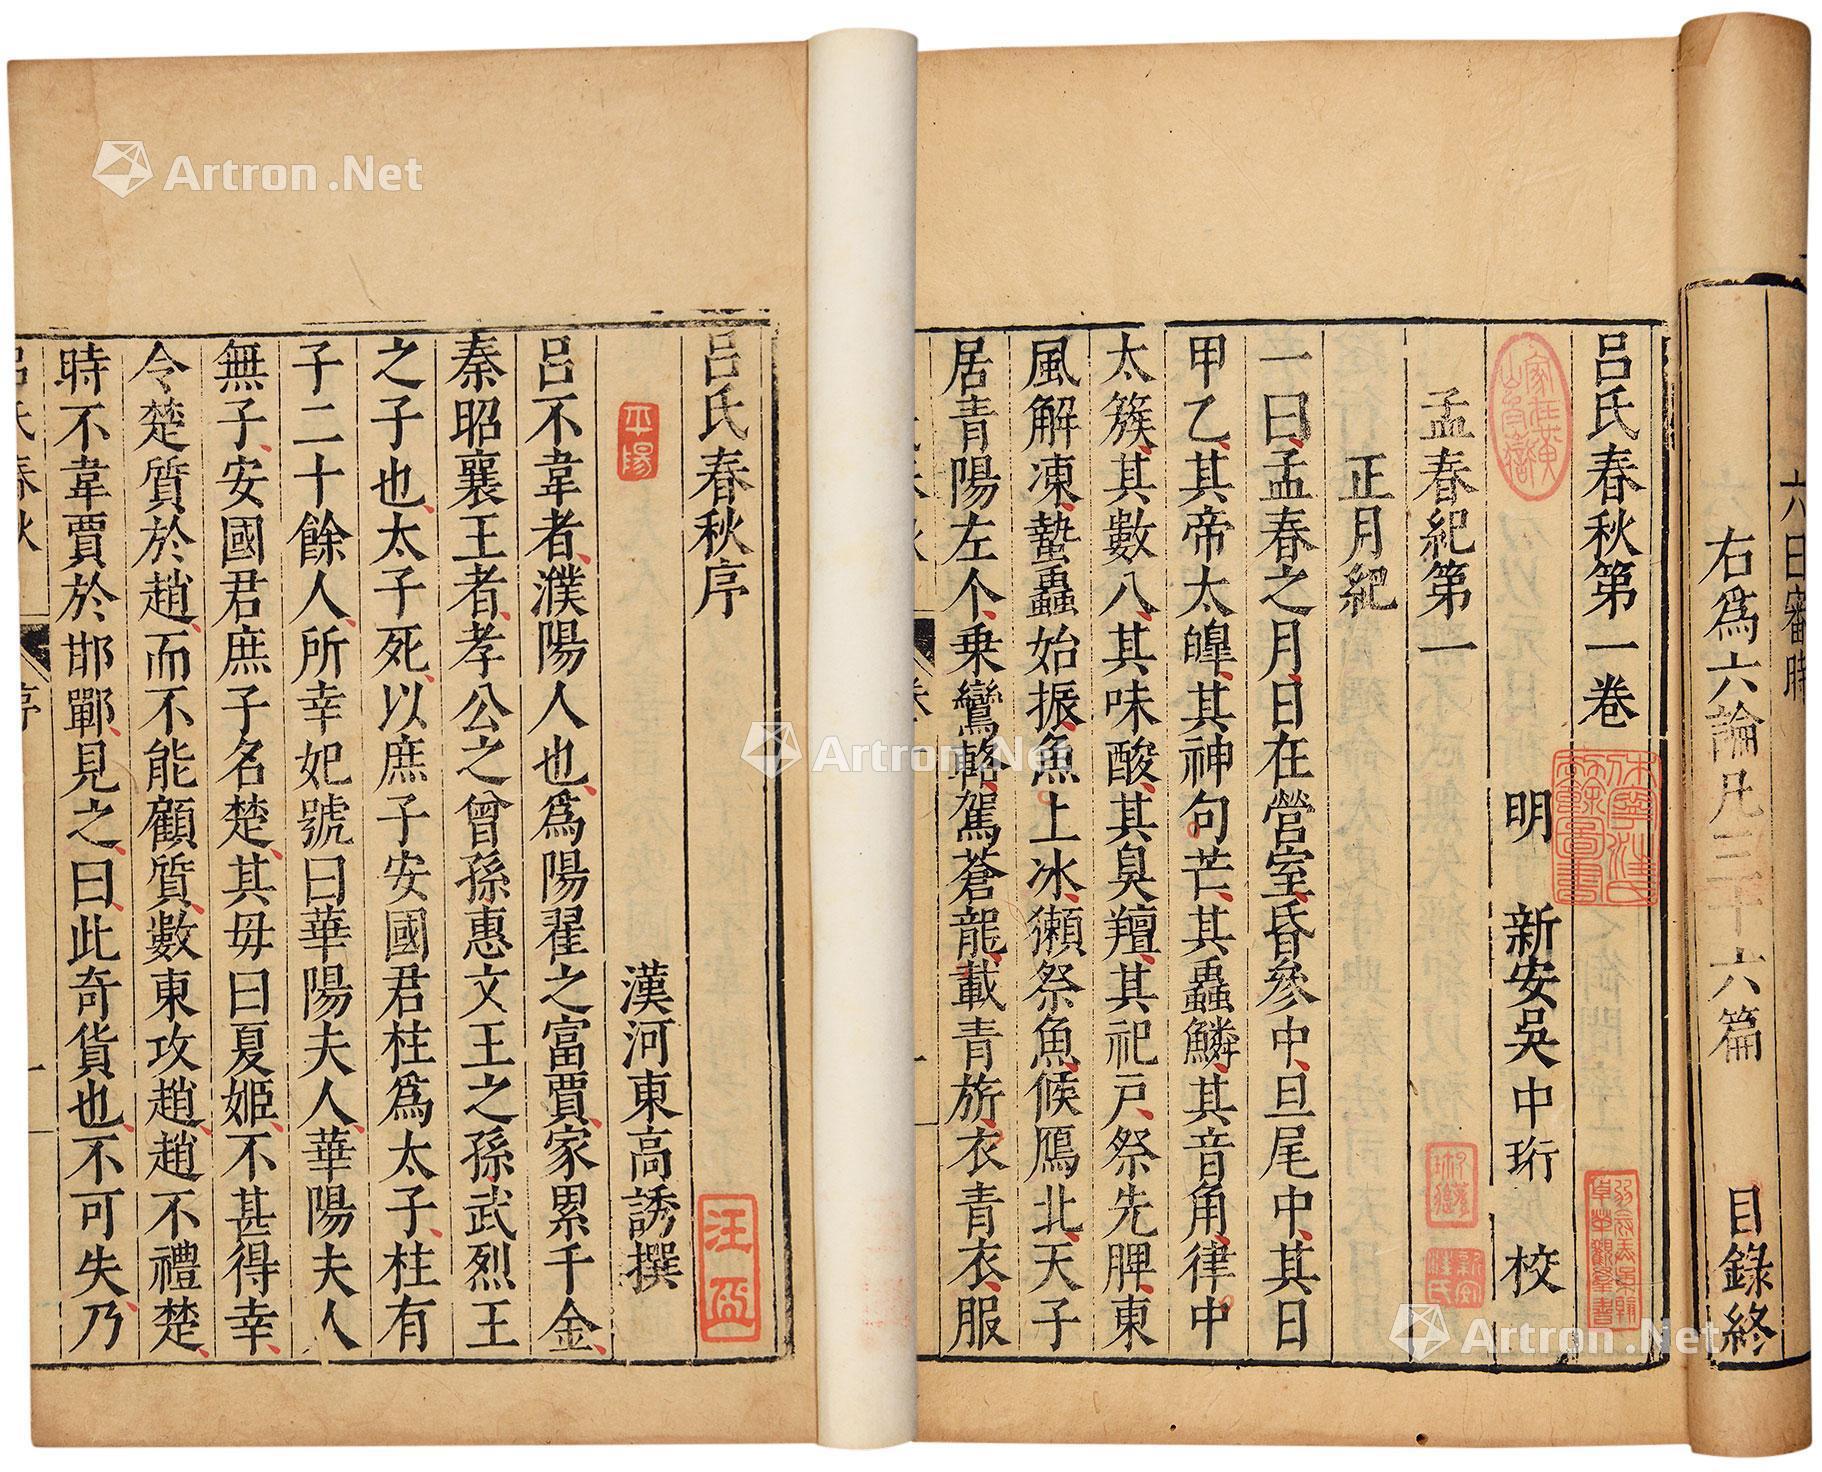 六曰審時
右爲六論凡三十六篇
目錄終
呂氏春秋第一卷
明 新安吳中珩 校
孟春紀第一
正月紀
一曰孟春之月日在營室昏參中旦尾中其日
甲乙其帝太皞其神句芒其蟲鱗其音角律中
太簇其數八其味酸其臭羶其祀戶祭先脾東
風解凍蟄蟲始振魚上冰獺祭魚候鴈北天子
居青陽左个乗鸞輅駕蒼龍載青旂衣青衣服
呂氏春秋序
漢河東高誘撰
呂不韋者濮陽人也爲陽翟之富賈家累千金
秦昭襄王者孝公之曾孫惠文王之孫武烈王
之子也太子死以庶子安國君柱爲太子柱有
子二十餘人所幸妃號曰華陽夫人華陽夫人
無子安國君庶子名楚其母曰夏姬不甚得幸
令楚質於趙而不能顧質數東攻趙趙不禮楚
時不韋賈於邯鄲見之曰此奇貨也不可失乃
呂氏春秋
序
一
平陽
Artron.Net
Artron.Net
Artron.Net